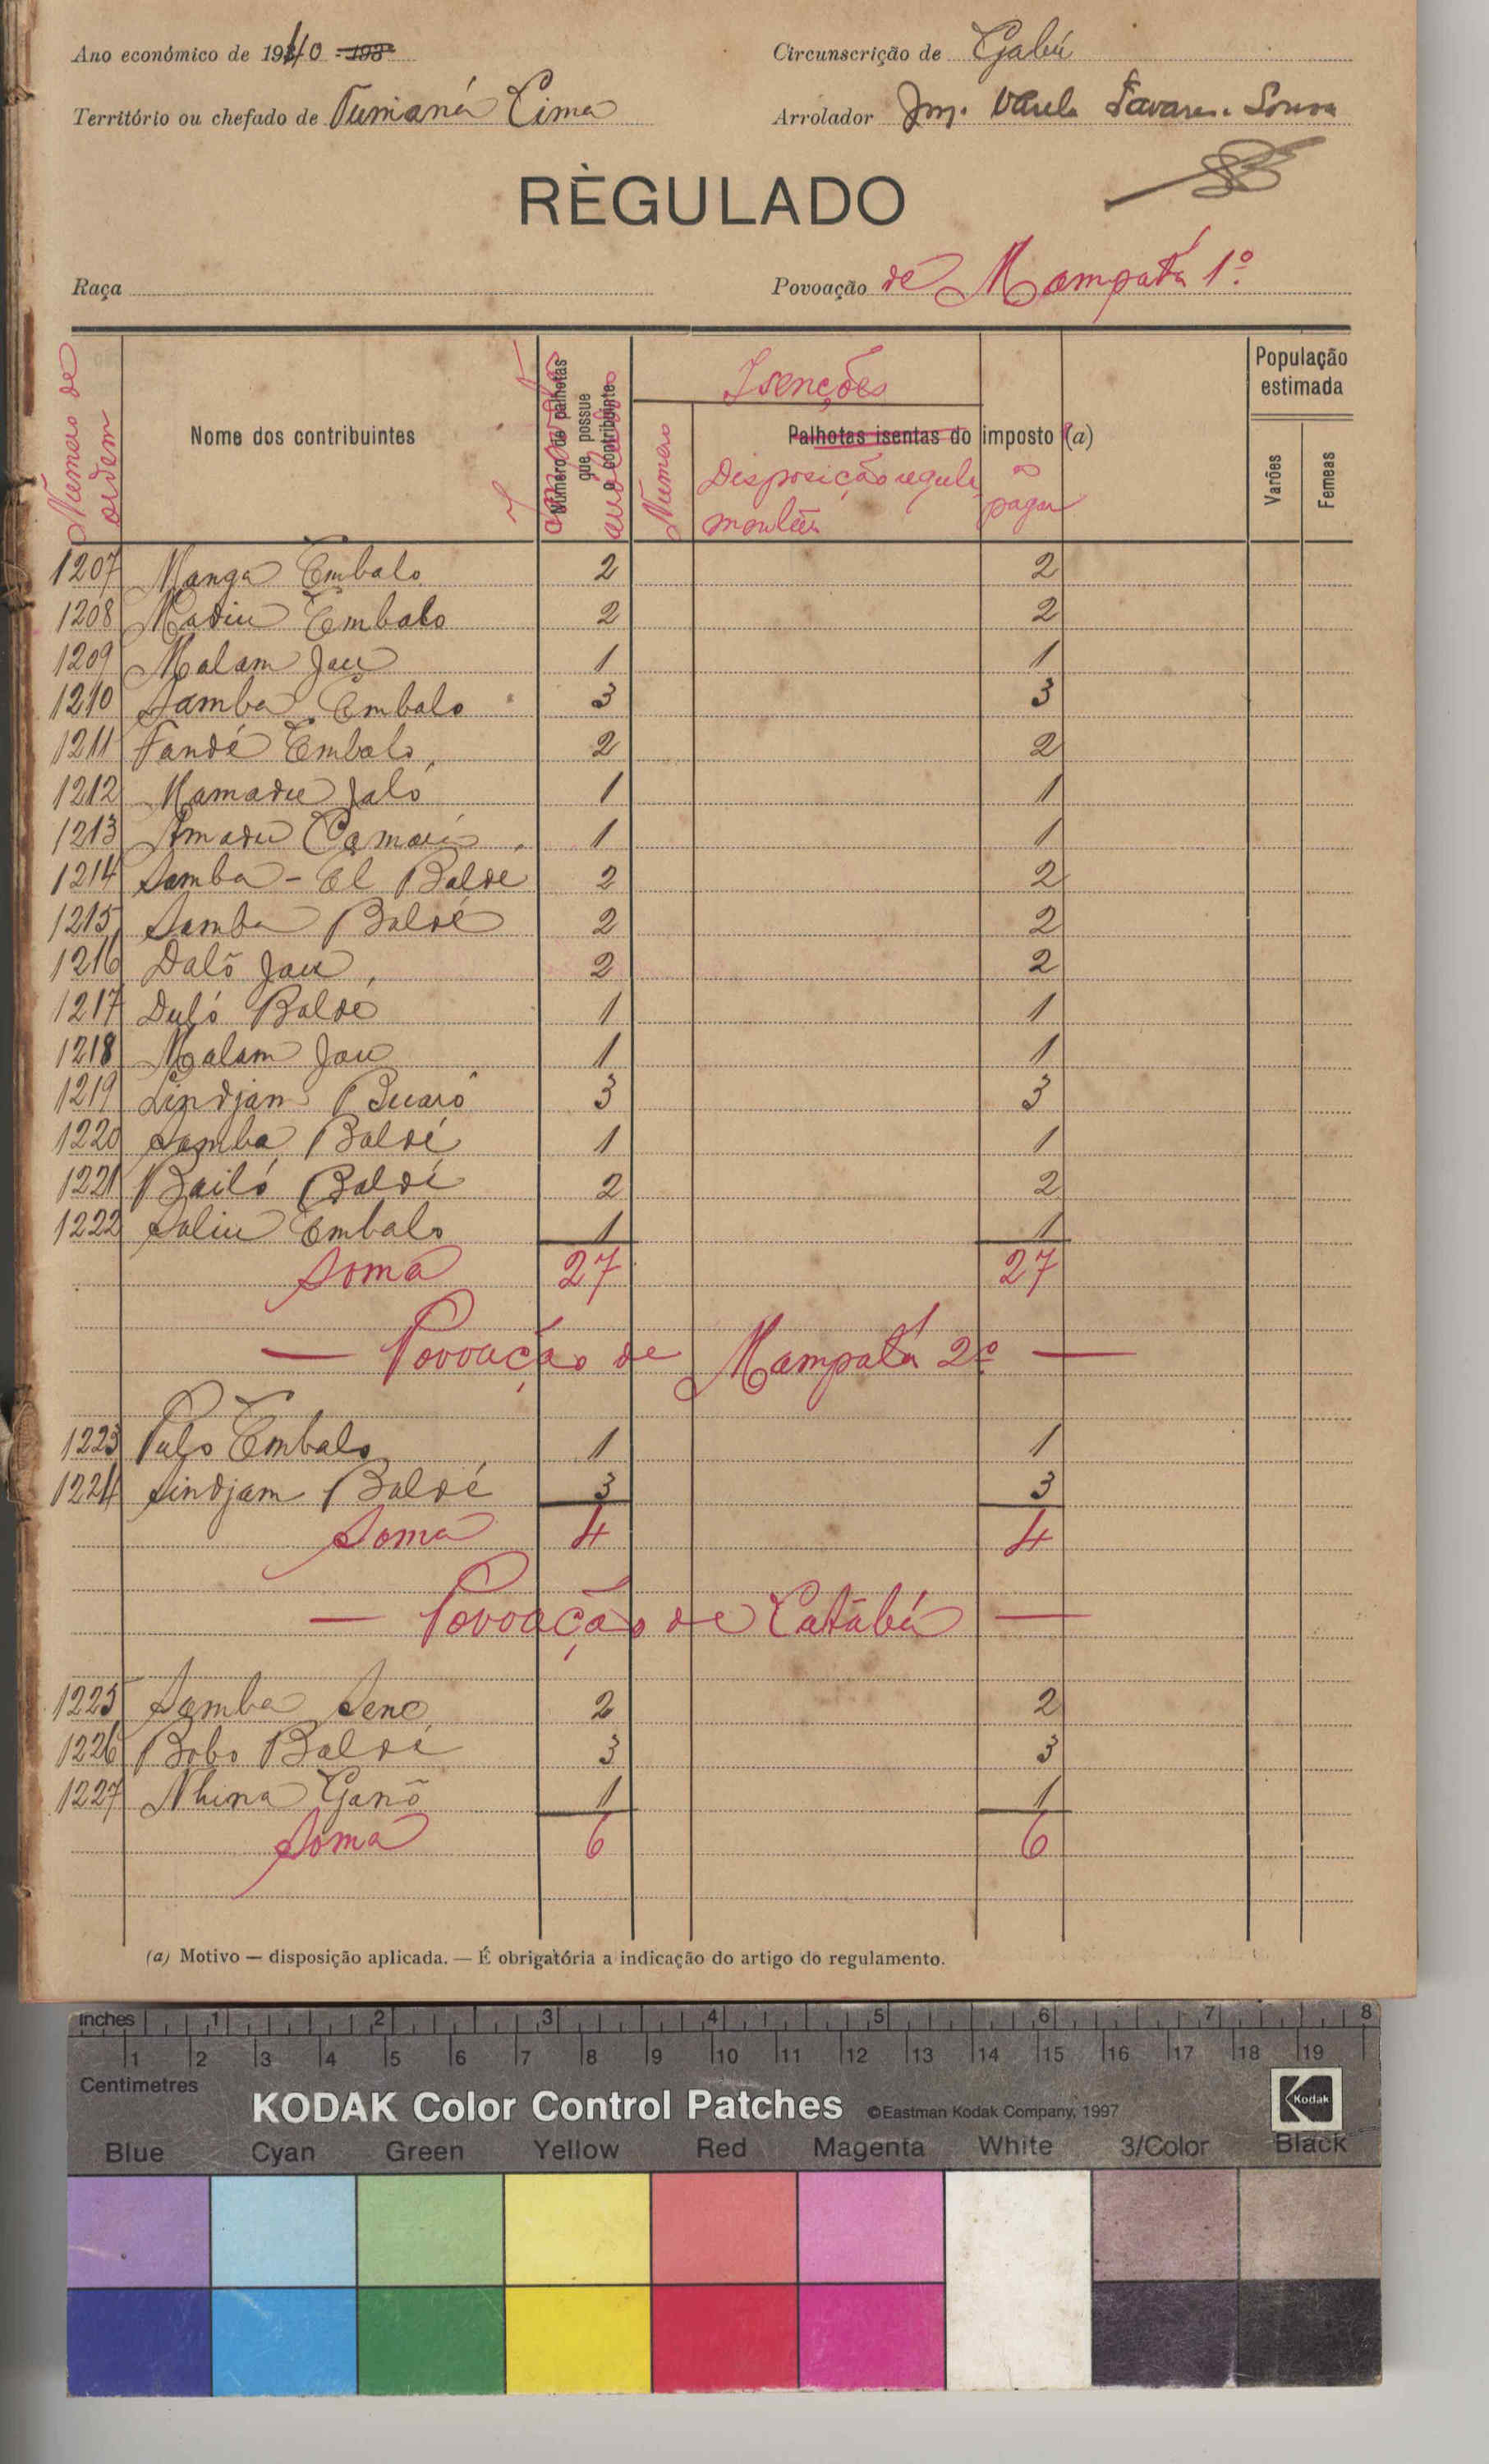 Ano económico de 1940 193
Circunscrição de Gabú
Território ou chefado de Tumaná Cima
Arrolador Varela Tavares Sousa
RÈGULADO
Raça
Povoação de Mampatá 1º
Número de ordem
Nome dos contribuintes
Número de palhotas que possue o contribuinte
Isenções
Número
Palhotas isentas do imposto (a)
Disposição regulamentar
a pagar
População estimada
Varões
Femeas
1207 Manga Embalo 2 2
1208 Madiu Embalo 2 2
1209 Malam Jau 1 1
1210 Samba Embalo 3 3
1211 Fandé Embalo 2 2
1212 Mamadu Jaló 1 1
1213 Amadu Camará 1 1
1214 Samba-El Balde 2 2
1215 Samba Baldé 2 2
1216 Daló Jau 2 2
1217 Duló Baldé 1 1
1218 Malam Jau 1 1
1219 Lindjam Buaró 3 3
1220 Samba Baldé 1 1
1221 Bailó Baldé 2 2
1222 Saliu Embalo 1 1
Soma 27 27
— Povoação de Mampatá 2º —
1223 Pulo Embalo 1 1
1224 Sindjam Baldé 3 3
Soma 4 4
— Povoação de Catabá —
1225 Samba Seno 2 2
1226 Bobo Baldé 3 3
1227 Nhima Ganó 1 1
Soma 6 6
(a) Motivo — disposição aplicada. — É obrigatória a indicação do artigo do regulamento.
inches 1 2 3 4 5 6 7 8
1 2 3 4 5 6 7 8 9 10 11 12 13 14 15 16 17 18 19
Centimetres
KODAK Color Control Patches ©Eastman Kodak Company, 1997 Kodak
Blue Cyan Green Yellow Red Magenta White 3/Color Black